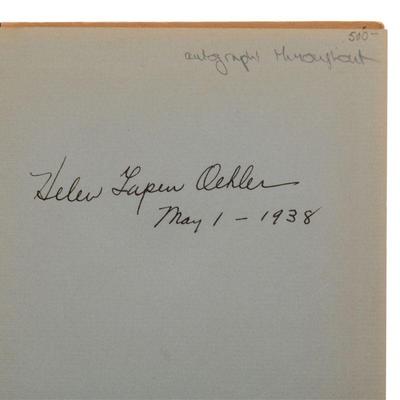 500-
autographs throughout
Helen Gapen Oehler
May 1 - 1938